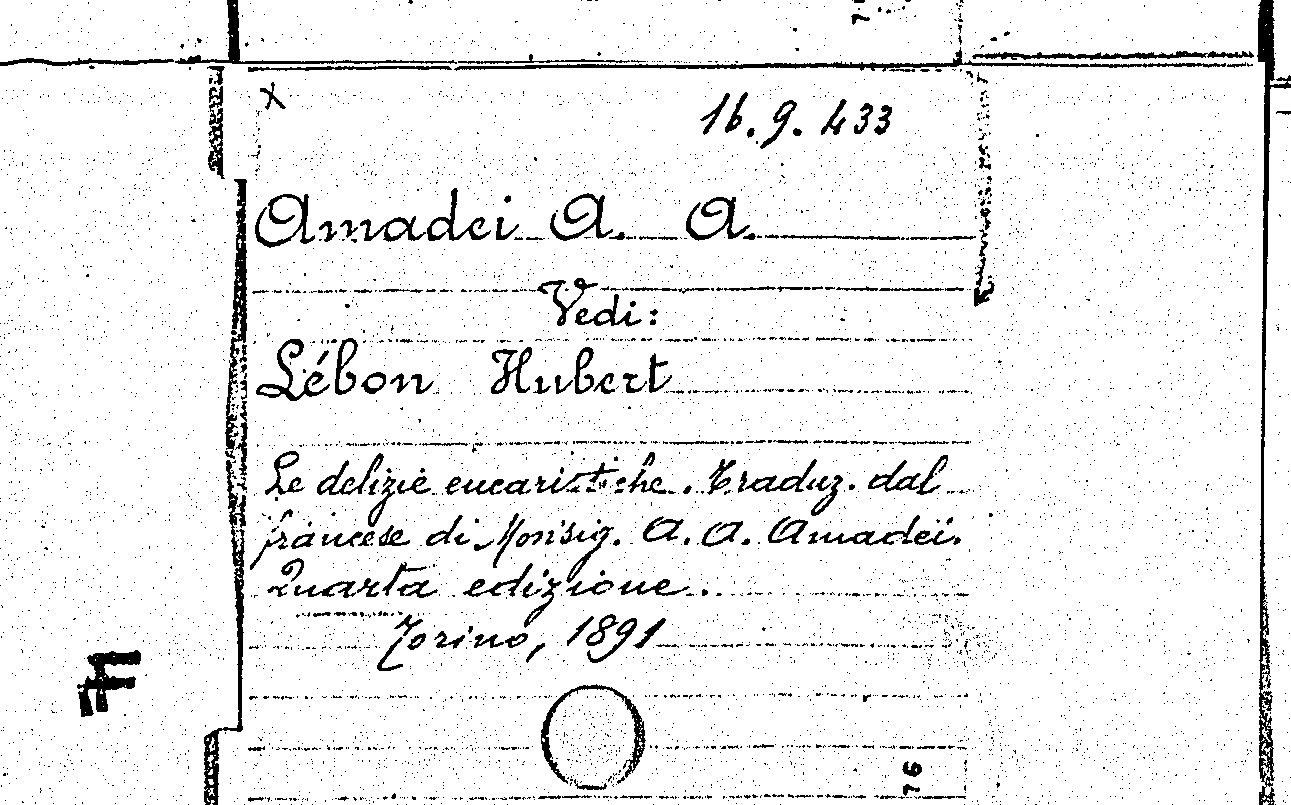 X
16.9.433
Amadei A. A.
Vedi:
Lébon Hubert
Le delizie eucaristiche. Traduz. dal
francese di Monsig. A. A. Amadei.
Quarta edizione.
Torino, 1891
76